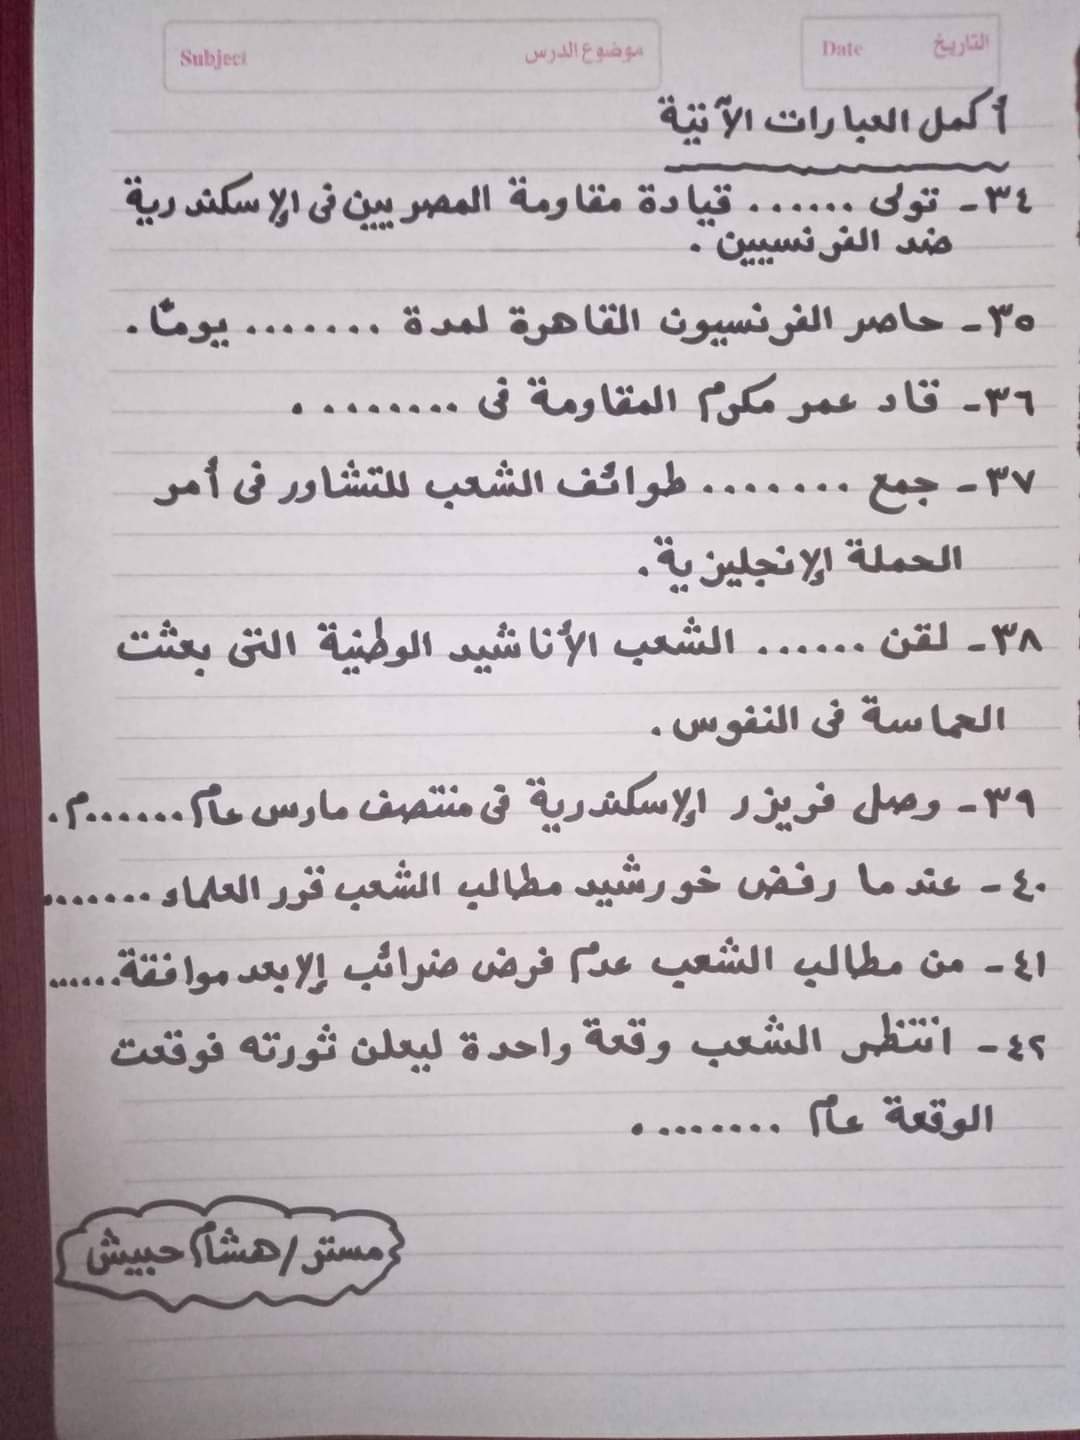 التاريخ Date
موضوع الدرس Subject
أكمل العبارات الآتية
٣٤- تولى ...... قيادة مقاومة المصريين فى الإسكندرية
ضد الفرنسيين .
٣٥- حاصر الفرنسيون القاهرة لمدة ....... يومًا .
٣٦- قاد عمر مكرم المقاومة فى ........ .
٣٧- جمع ....... طوائف الشعب للتشاور فى أمر
الحملة الإنجليزية .
٣٨- لقن ...... الشعب الأناشيد الوطنية التى بعثت
الحماسة فى النفوس .
٣٩- وصل فريزر الإسكندرية فى منتصف مارس عام ...... م .
٤٠- عندما رفض خورشيد مطالب الشعب قرر العلماء ........
٤١- من مطالب الشعب عدم فرض ضرائب إلا بعد موافقة ......
٤٢- انتظر الشعب وقعة واحدة ليعلن ثورته فوقعت
الوقعة عام ........ .
مستر / هشام حبيش